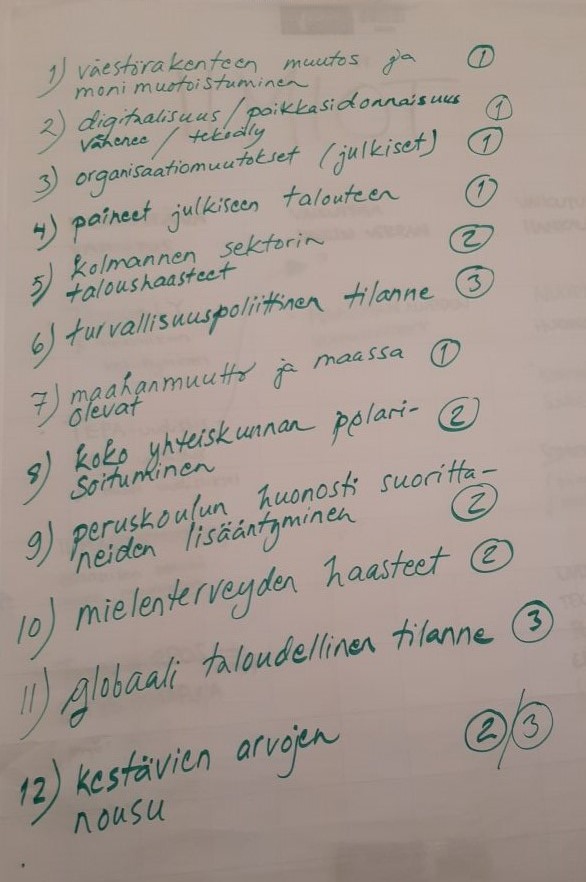 1) väestörakenteen muutos ja ①
monimuotoistuminen
2) digitaalisuus / paikkasidonnaisuus ①
vähenee / tekoäly
3) organisaatiomuutokset (julkiset) ①
4) paineet julkiseen talouteen ①
5) kolmannen sektorin ②
taloushaasteet
6) turvallisuuspoliittinen tilanne ③
7) maahanmuutto ja maassa ①
olevat
8) koko yhteiskunnan polari- ②
soituminen
9) peruskoulun huonosti suoritta-
neiden lisääntyminen ②
10) mielenterveyden haasteet ②
11) globaali taloudellinen tilanne ③
12) kestävien arvojen ②/③
nousu